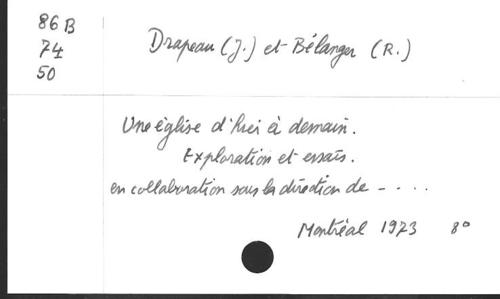 86 B
74
50
Drapeau (J.) et Bélanger (R.)
Une église d'hier à demain.
Exploration et essais.
en collaboration sous la direction de - . . . .
Montréal 1973 8°